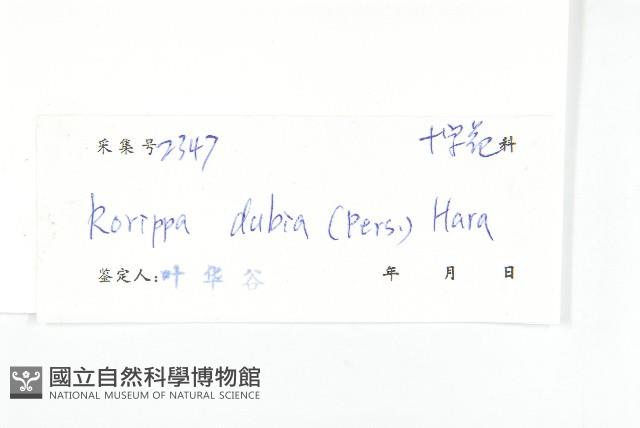 采集号 2347 十字花科
Rorippa dubia (Pers.) Hara
鉴定人: 叶华谷 年 月 日
國立自然科學博物館
NATIONAL MUSEUM OF NATURAL SCIENCE